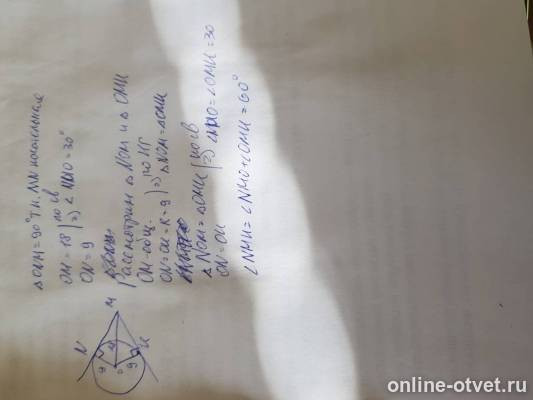 ∠ONM = 90° т.к. MN касательная
OM = 18 | по св
ON = 9 | => ∠NMO = 30°
Рассмотрим △NOM и △OMK
OM - общ.
ON = OK = R = 9 | => по КГ △NOM = △OMK
△NOM = △OMK | по св
ON = OK | => ∠NMO = ∠OMK = 30
∠NMK = ∠NMO + ∠OMK = 60°
N
M
K
O
9
9
18
online-otvet.ru